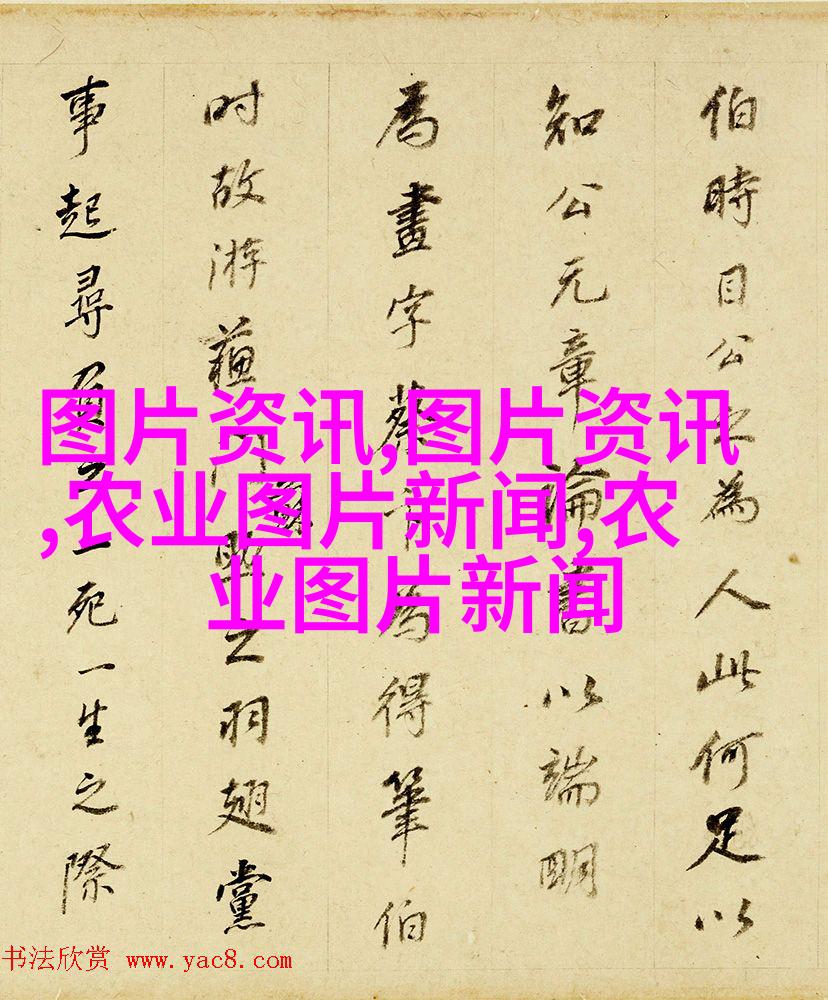 伯時目公之為人此何足以
知公元章論書以端明
為畫字蔡為得筆伯
时故游蘇門之羽翅黨
事起尋負之一死一生之際
图片资讯,图片资讯
,农业图片新闻,农
业图片新闻
书法欣赏 www.yac8.com